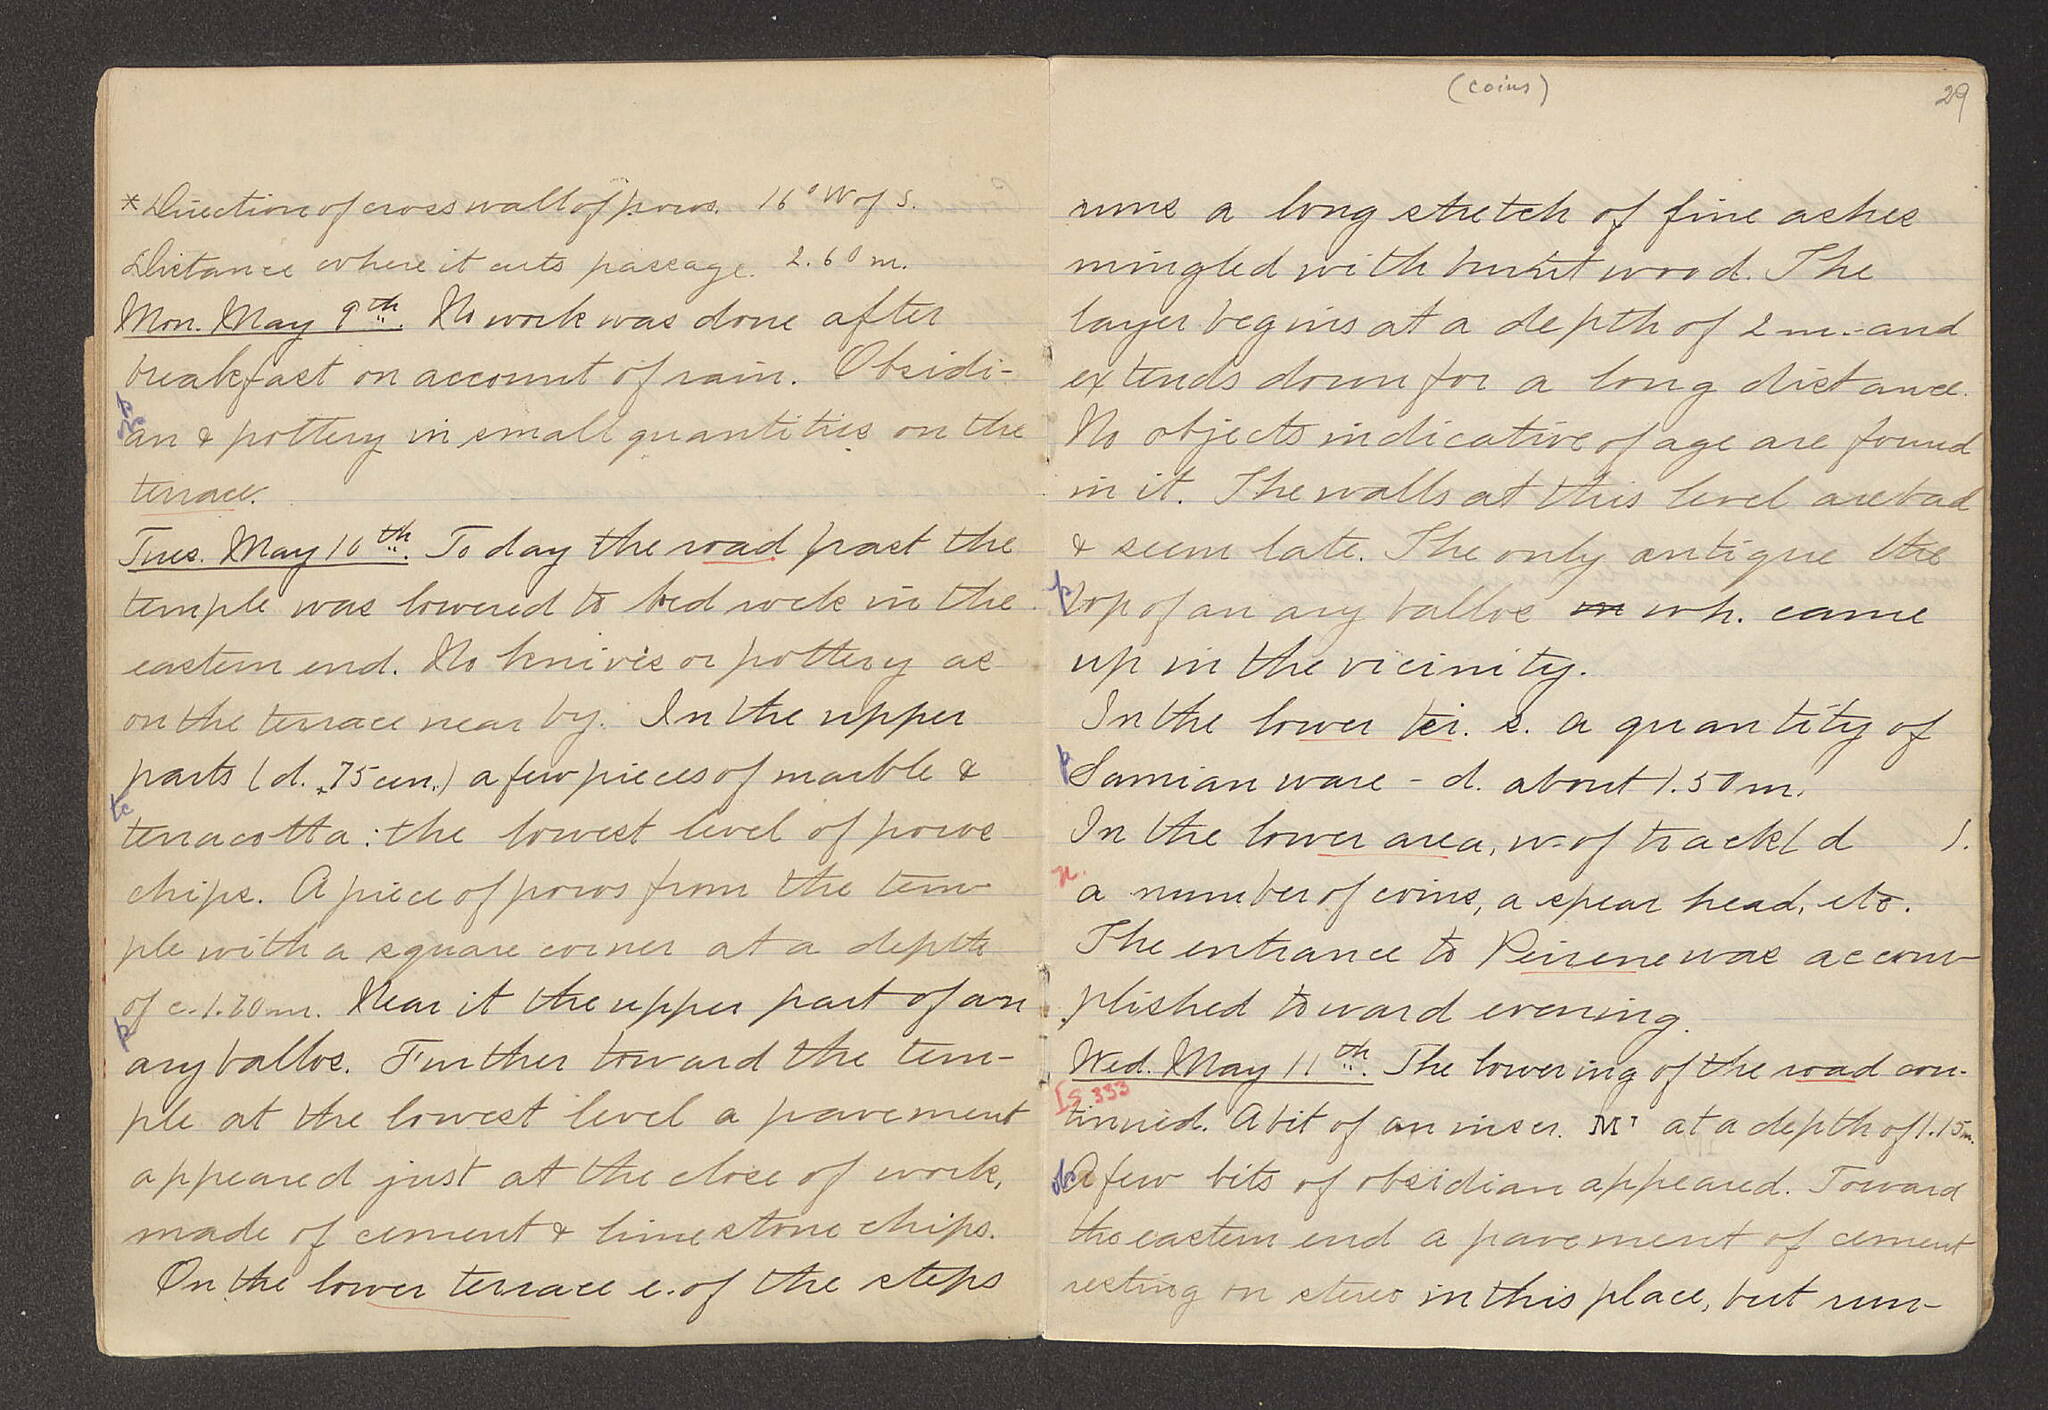 *Direction of cross wall of poros. 16° W of S.
Distance where it cuts passage. 2.60 m.
Mon. May 9th. No work was done after
breakfast on account of rain. Obsidi-
an & pottery in small quantities on the
terrace.
Tues. May 10th. To day the road past the
temple was lowered to bed rock in the
eastern end. No knives or pottery as
on the terrace near by. In the upper
parts (d. .75 cm.) a few pieces of marble &
tc
terracotta: the lowest level of poros
chips. A piece of poros from the tem-
ple with a square corner at a depth
of c. 1.20 m. Near it the upper part of an
p
aryballos. Further toward the tem-
ple at the lowest level a pavement
appeared just at the close of work,
made of cement & limestone chips.
On the lower terrace e. of the steps
(coins)
29
runs a long stretch of fine ashes
mingled with burnt wood. The
layer begins at a depth of 2 m. and
extends down for a long distance.
No objects indicative of age are found
in it. The walls at this level are bad
& seem late. The only antique the
p
top of an aryballos in wh. came
up in the vicinity.
In the lower ter. s. a quantity of
p
Samian ware - d. about 1.50 m.
In the lower area, w. of track (d ).
n.
a number of coins, a spear head, etc.
The entrance to Peirene was accom-
plished toward evening.
Wed. May 11th. The lowering of the road con-
IS 333
tinued. A bit of an inscr. at a depth of 1.15 m.
ob
A few bits of obsidian appeared. Toward
the eastern end a pavement of cement
resting on stereo in this place, but run-